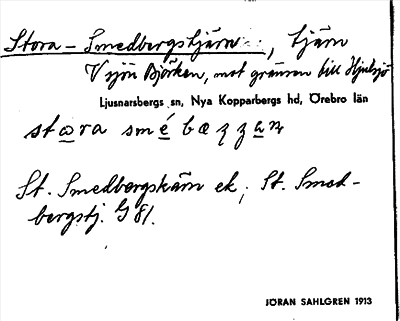 Stora-Smedbergstjärn, tjärn
V sjön Björken, mot gränsen till Hjulsjö
Ljusnarsbergs sn, Nya Kopparbergs hd, Örebro län
St. Smedbergskärn ek; St. Smed-
bergstj. G 81.
JÖRAN SAHLGREN 1913